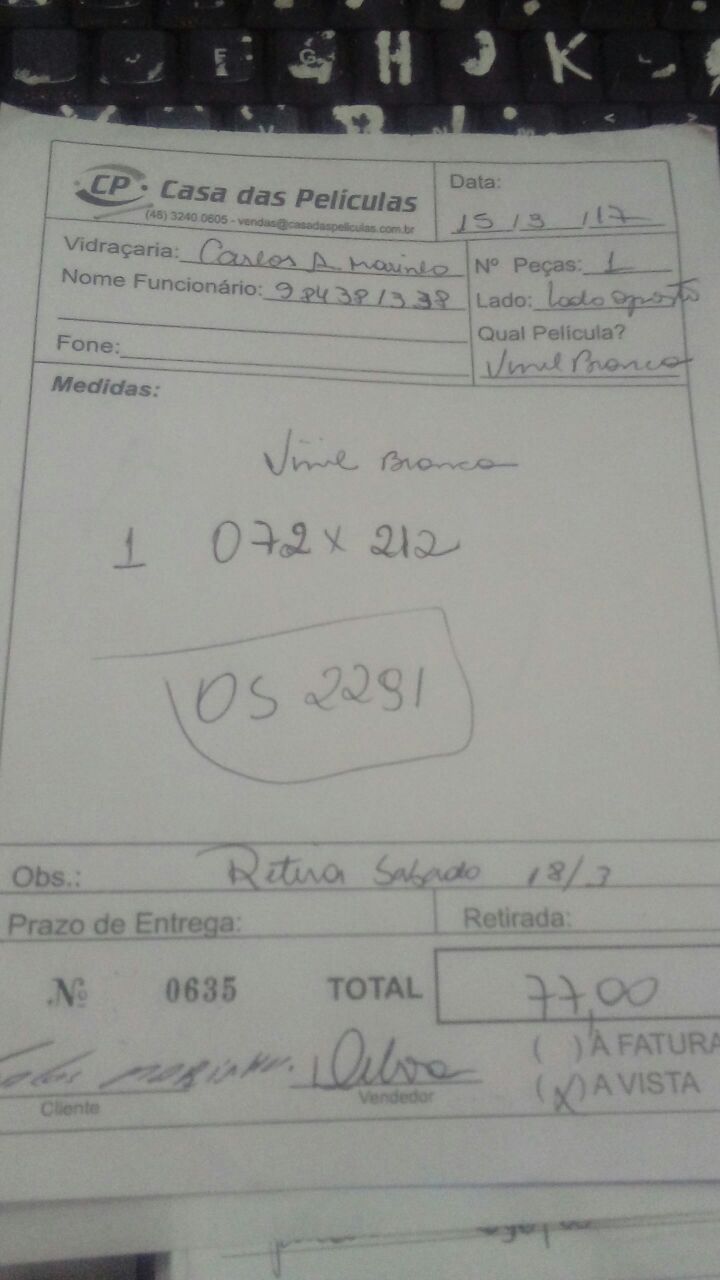 H J K
CP Casa das Películas
(48) 3240.0605 - vendas@casadaspeliculas.com.br
Data:
15/3/17
Vidraçaria: Carlos A Marinho
Nº Peças: 1
Nome Funcionário: 984381338
Lado: Lado oposto
Qual Película?
Vinil Branco
Fone:
Medidas:
Vinil Branco
1 072 x 212
OS 2291
Obs.: Retira Sabado 18/3
Prazo de Entrega:
Retirada:
Nº 0635 TOTAL 77,00
( ) À FATURA
(X) A VISTA
Cliente
Vendedor